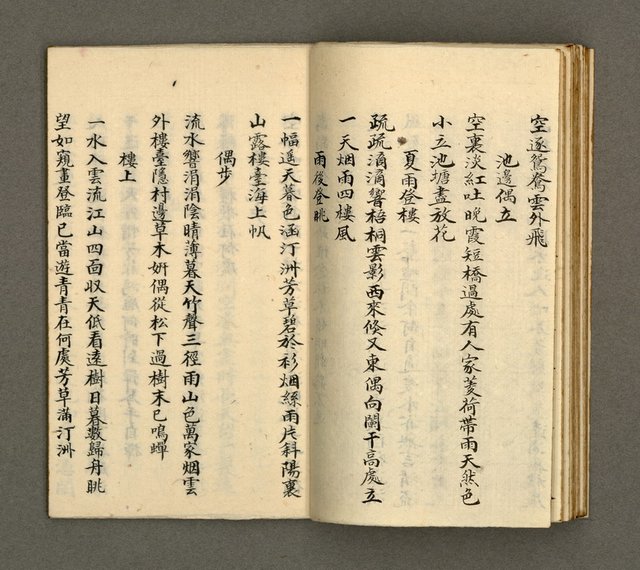 空逐鴛鴦雲外飛
池邊偶立
空裏淡紅吐晚霞短橋過處有人家菱荷帶雨天然色
小立池塘盡放花
夏雨登樓
疏疏滴滴響梧桐雲影西來倐又東偶向闌干高處立
一天烟雨四樓風
雨後登眺
一幅遙天暮色涵汀洲芳草碧於衫烟絲雨片斜陽裏
山露樓臺海上帆
偶步
流水響涓涓陰晴薄暮天竹聲三徑雨山色萬家烟雲
外樓臺隱村邊草木妍偶從松下過樹末已鳴蟬
樓上
一水入雲流江山四面収天低看遠樹日暮數歸舟眺
望如窺畫登臨已當遊青青在何處芳草滿汀洲